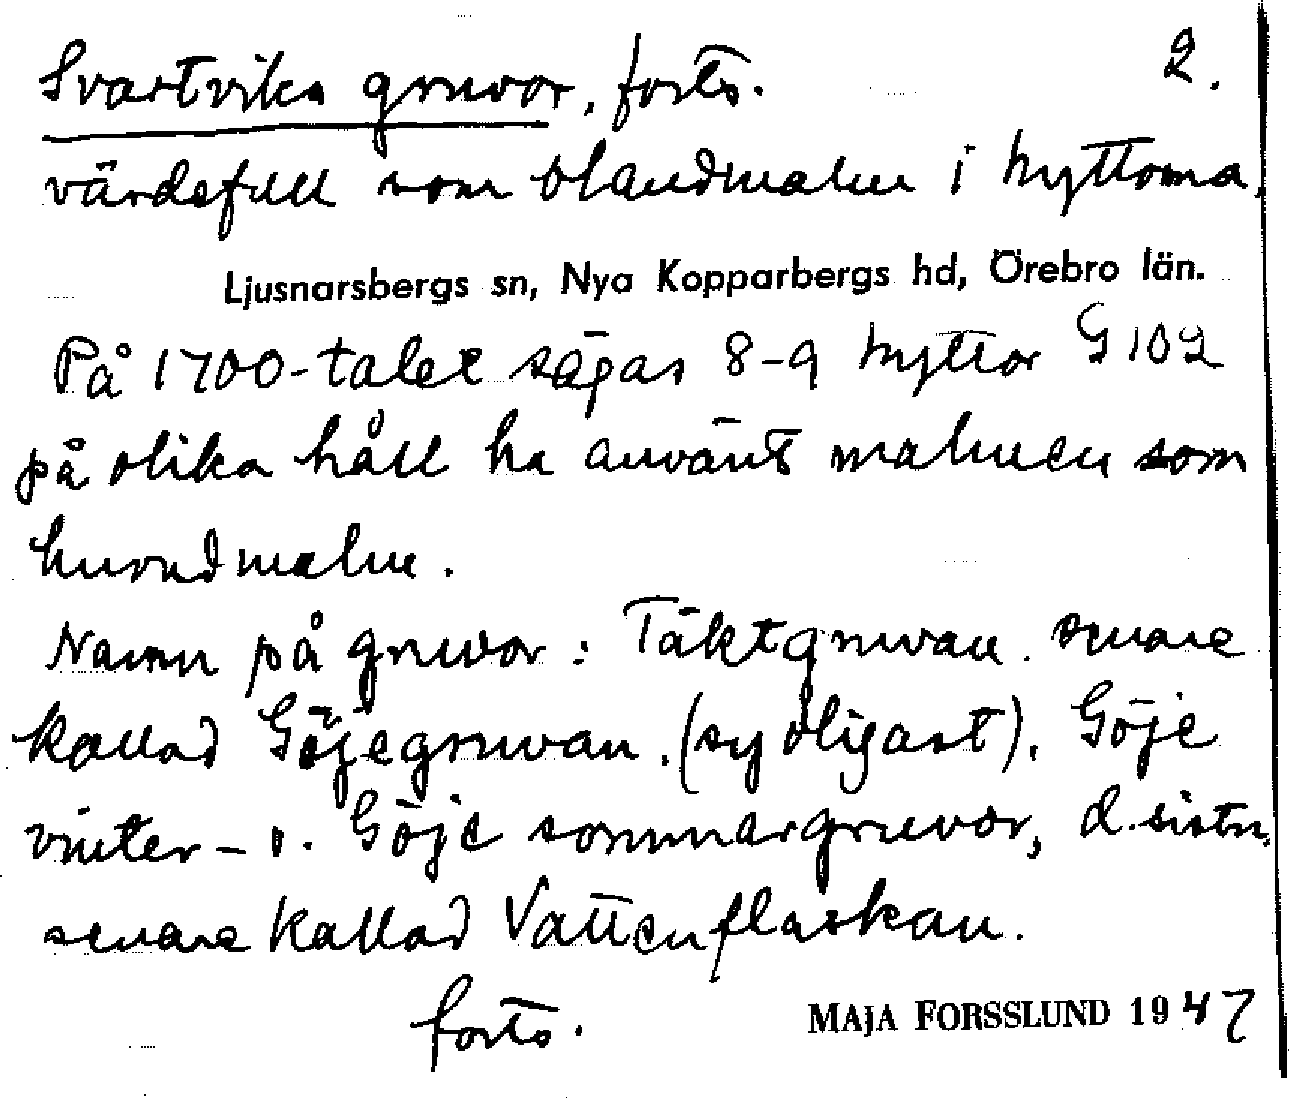 Svartviks gruvor, forts. 2.
värdefull som blandmalm i hyttorna.
Ljusnarsbergs sn, Nya Kopparbergs hd, Örebro län.
På 1700-talet sägas 8-9 hyttor G 102
på olika håll ha använt malmen som
huvudmalm.
Namn på gruvor: Täktgruvan. senare
kallad Göjegruvan. (sydligast). Göje
vinter- o. Göje sommargruvor, d. sistn.
senare kallad Vattenflaskan.
forts. MAJA FORSSLUND 1947